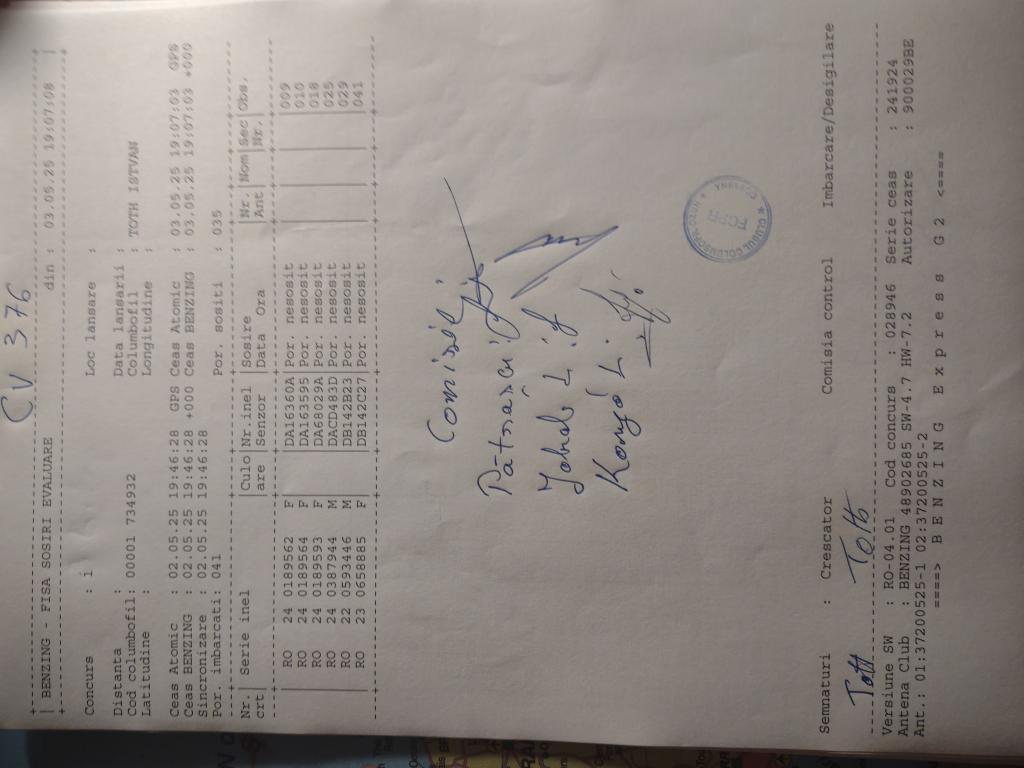 CV 376
| BENZING - FISA SOSIRI EVALUARE din : 03.05.25 19:07:08 |
Concurs : 1 Loc lansare :
Distanta : Data lansarii :
Cod columbofil: 00001 734932 Columbofil : TOTH ISTVAN
Latitudine : Longitudine :
Ceas Atomic : 02.05.25 19:46:28 GPS Ceas Atomic : 03.05.25 19:07:03 GPS
Ceas BENZING : 02.05.25 19:46:28 +000 Ceas BENZING : 03.05.25 19:07:03 +000
Sincronizare : 02.05.25 19:46:28
Por. imbarcati: 041 Por. sositi : 035
Nr.| Serie inel |Culo|Nr.inel |Sosire |Nr |Nom|Sec|Obs.
crt| |are |Senzor |Data Ora |Ant| |Nr.|
| RO 24 0189562 F| |DA16360A|Por. nesosit | | | |009
| RO 24 0189564 F| |DA163595|Por. nesosit | | | |010
| RO 24 0189593 F| |DA68029A|Por. nesosit | | | |018
| RO 24 0387944 M| |DACD483D|Por. nesosit | | | |025
| RO 22 0593446 M| |DB142B23|Por. nesosit | | | |029
| RO 23 0658885 F| |DB142C27|Por. nesosit | | | |041
Comisii
L.
L.
CLUBUL COLUMBOFIL
FCPR
Semnaturi : Crescator Comisia control Imbarcare/Desigilare
Toth Toth
Versiune SW : RO-04.01 Cod concurs : 028946 Serie ceas : 241924
Antena Club : BENZING 48902685 SW-4.7 HW-7.2 Autorizare : 900029BE
Ant.: 01:37200525-1 02:37200525-2
====> B E N Z I N G E x p r e s s G 2 <====